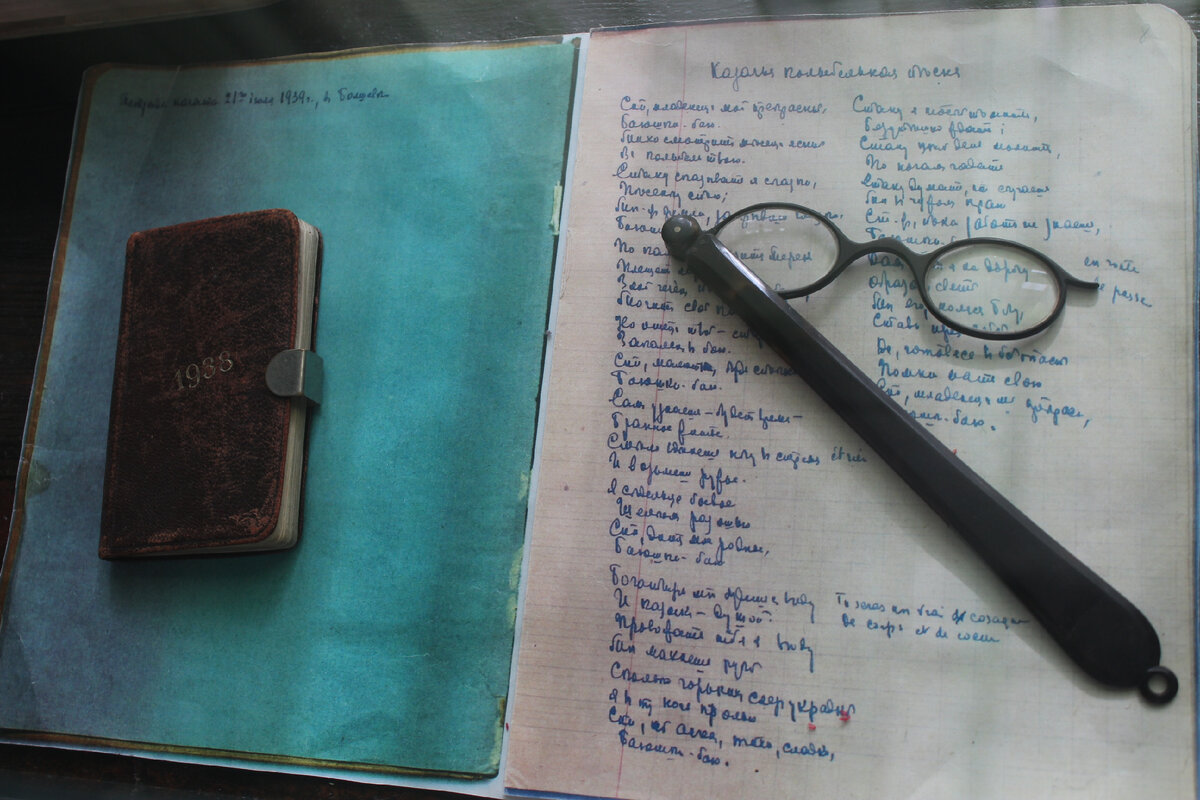 Тетрадь начата 21го июля 1939г., в Болшеве
1938
Казачья колыбельная песня
Спи, младенец мой прекрасный,
Баюшки-баю.
Тихо смотрит месяц ясный
В колыбель твою.
Стану сказывать я сказки,
Песенку спою;
Баюшки
По
Плещет
Злой чечен
Точит свой
Но отец твой — ст
Закален в бою.
Спи, малютка,
Баюшки-баю.
Сам узнаешь — будет время —
Бранное житьё.
Смело вденешь ногу в стремя
И возьмешь ружьё.
Я седельце боевое
Шелком разошью
Спи, дитя мое родное,
Баюшки-баю
Богатырь ты будешь с виду
И казак — душой.
Провожать тебя я выйду
Ты махнешь рукой
Сколько горьких слез украдкой
Я в ту ночь пролью
Спи, мой ангел, тихо, сладко,
Баюшки-баю.
Tu seras un vrai cosaque
De corps et de coeur
Стану я тоской томиться,
Безутешно ждать;
Стану целый день молиться,
По ночам гадать
Стану думать, что скучаешь
Ты в чужом краю
Спи, пока забот не знаешь,
Баюшки-ба
я на дорогу
образок святой
en route
passe
Ставь
Да, готовясь в бой опасный
Помни мать свою
Спи, младенец мой прекрасный,
баю.